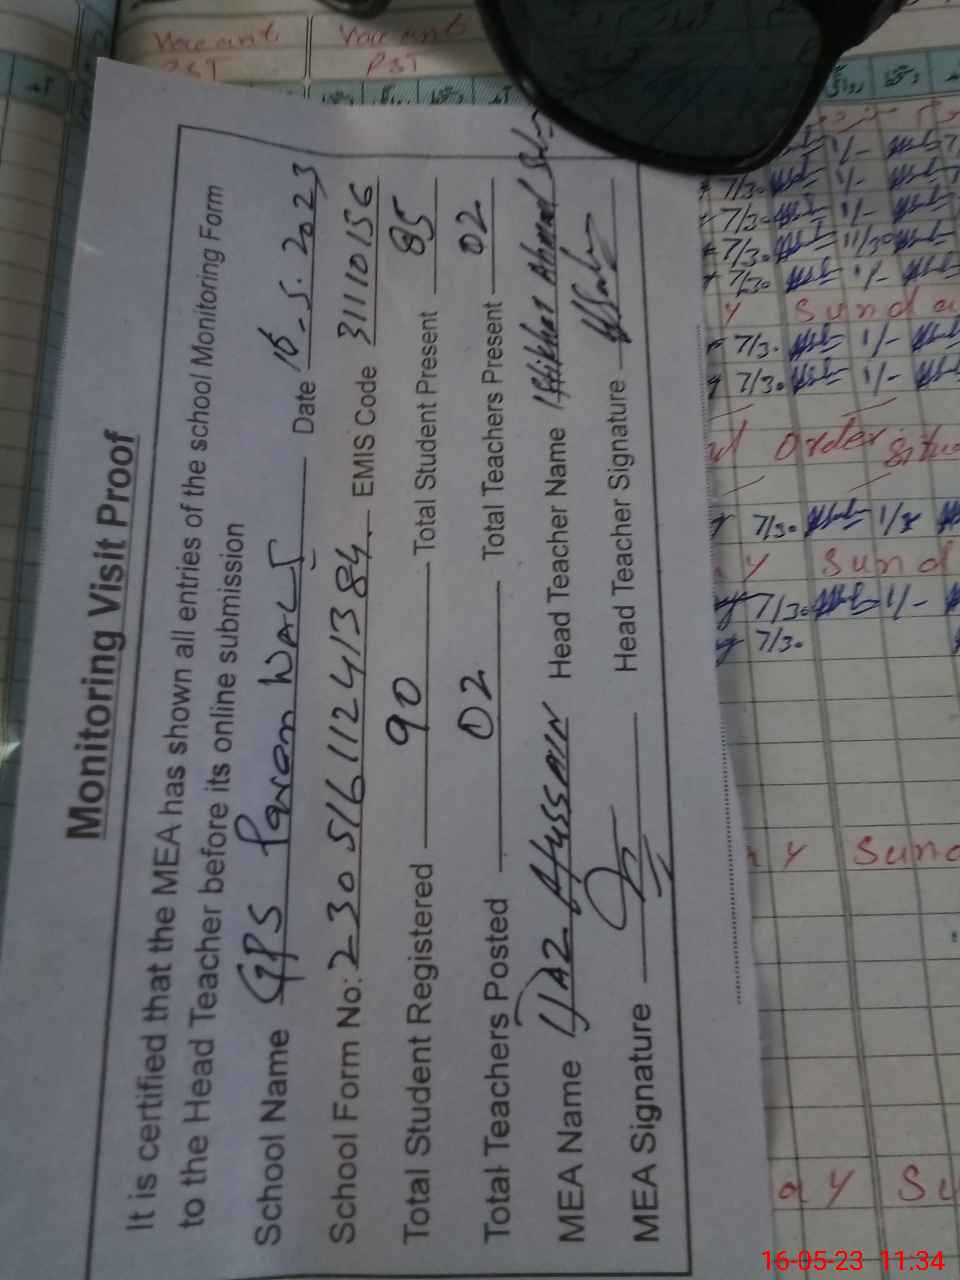 Monitoring Visit Proof
It is certified that the MEA has shown all entries of the school Monitoring Form
to the Head Teacher before its online submission
School Name GPS Date 16-5-2023
School Form No: 23051611241384 EMIS Code 31110156
Total Student Registered 90 Total Student Present 85
Total Teachers Posted 02 Total Teachers Present 02
MEA Name IJAZ Hussain Head Teacher Name Iftikhar Ahmed
MEA Signature Head Teacher Signature
Vacant Vacant
PST PST
7/30 1/-
7/30 1/-
7/30 11/30
7/30 1/-
y Sunda
7/30 1/-
7/30 1/-
order situ
7/30
y Sund
7/30 1/-
7/30
y Sund
ay Su
16-05-23 11:34